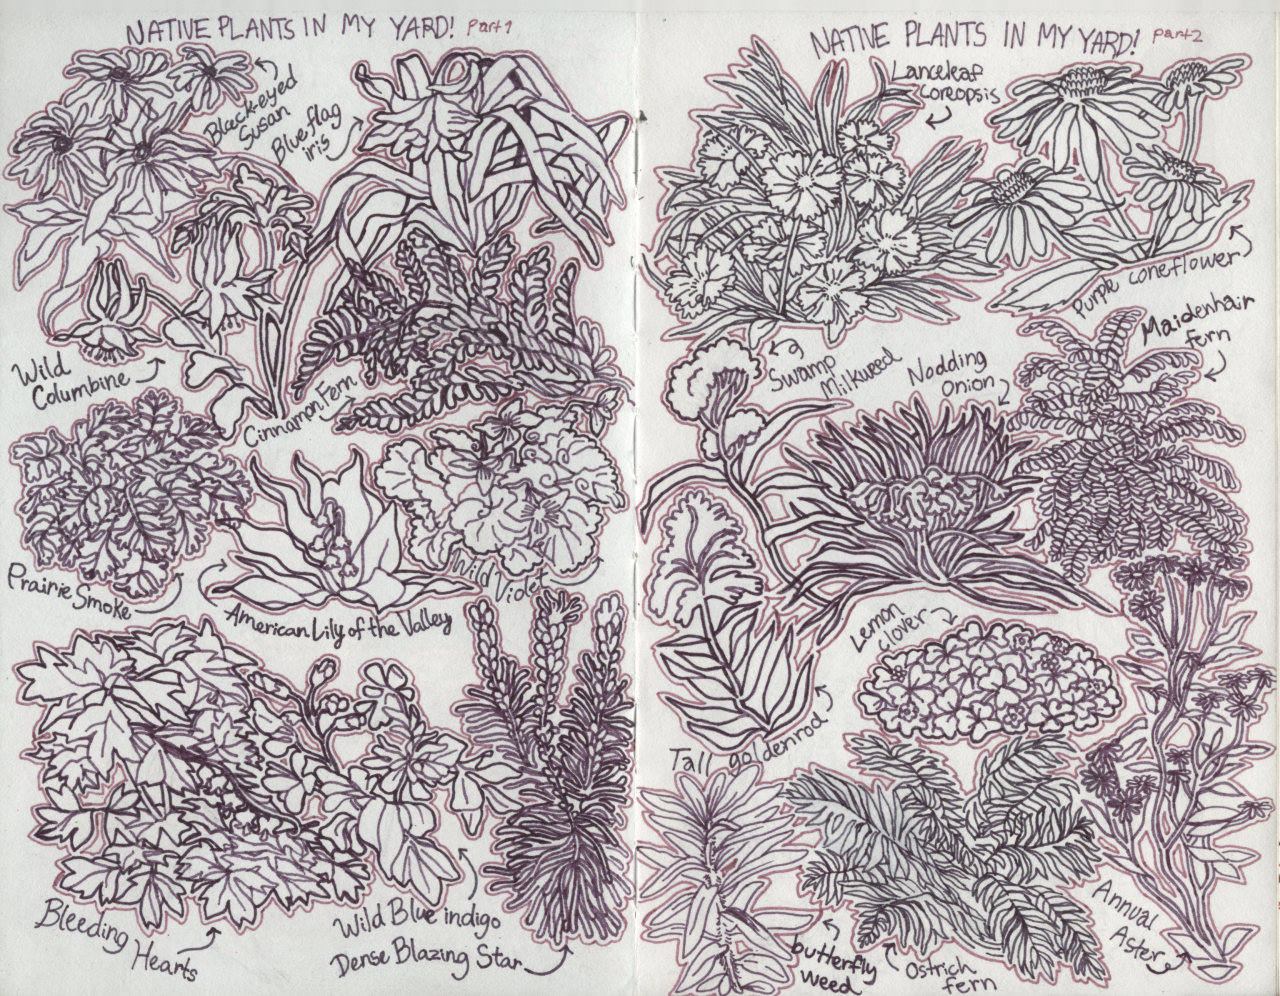 NATIVE PLANTS IN MY YARD! Part 1
Black-eyed
Susan
Blue flag
iris
Wild
Columbine
Cinnamon Fern
Prairie Smoke
American Lily of the Valley
Wild Violet
Bleeding
Hearts
Wild Blue indigo
Dense Blazing Star
NATIVE PLANTS IN MY YARD! Part 2
Lanceleaf
Coreopsis
Purple coneflower
Maidenhair
fern
Swamp
Milkweed
Nodding
Onion
Lemon
clover
Tall goldenrod
butterfly
weed
Ostrich
fern
Annual
Aster